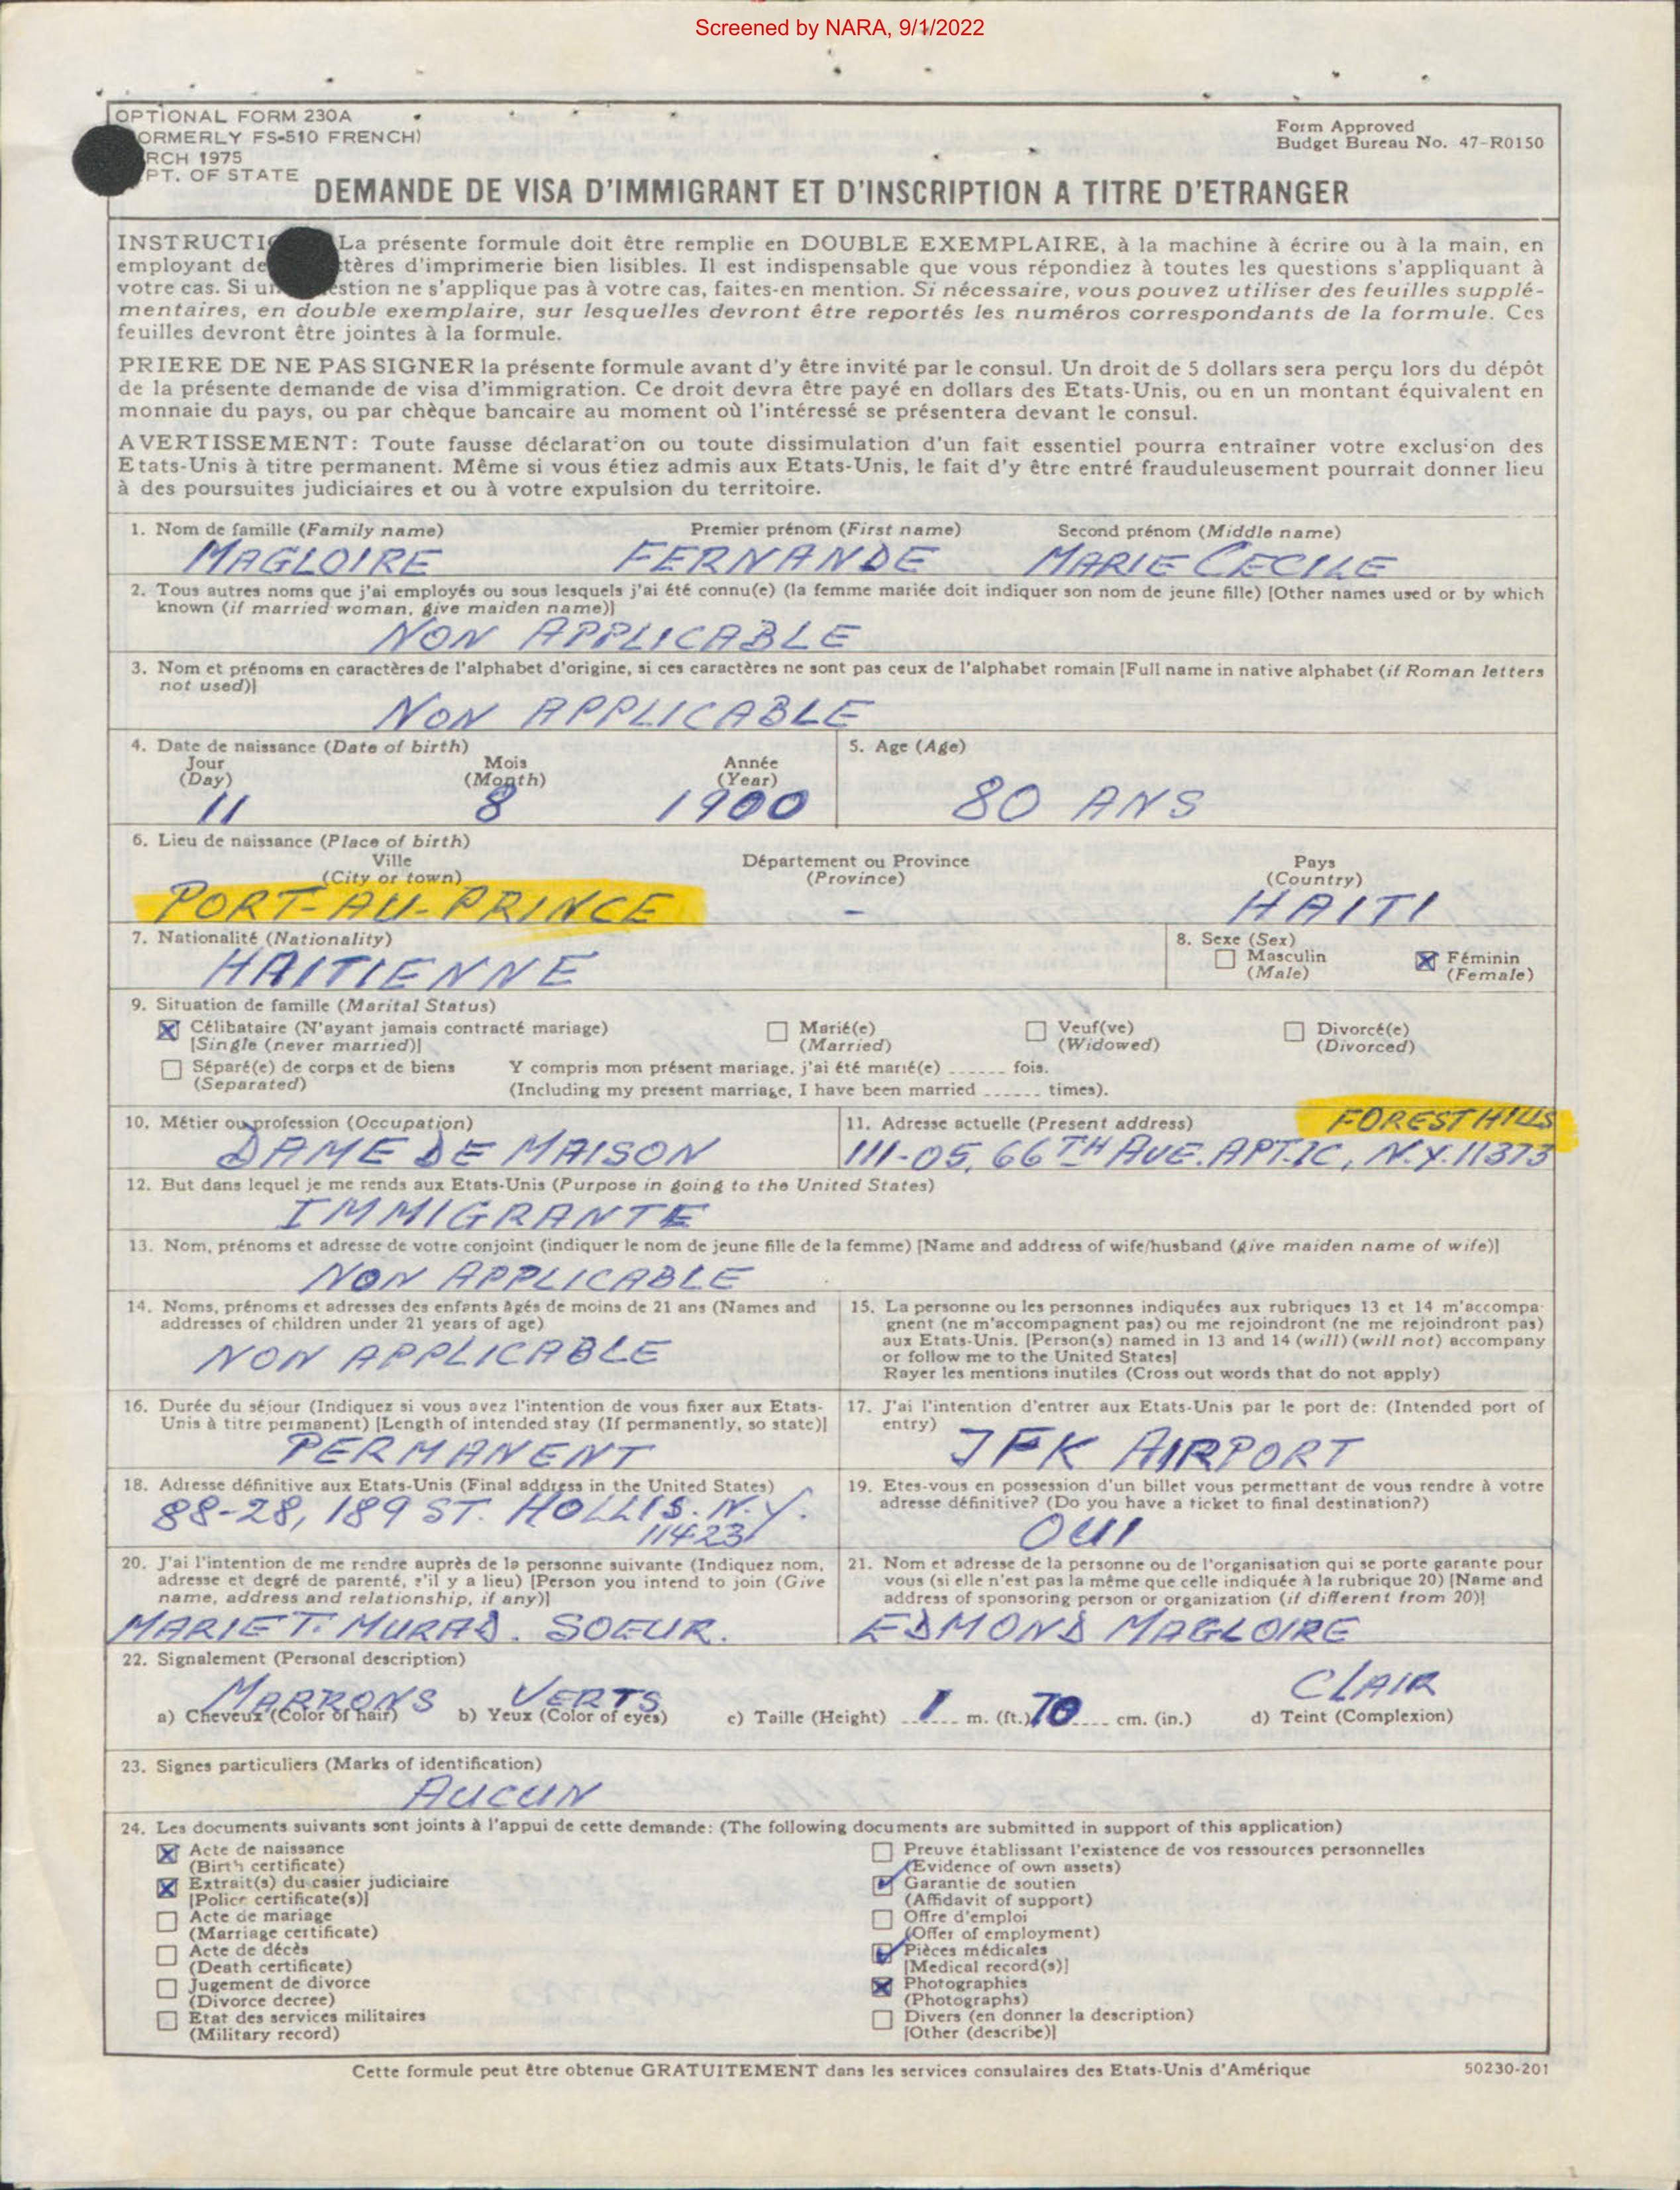 Screened by NARA, 9/1/2022
OPTIONAL FORM 230A
ORMERLY FS-510 FRENCH)
RCH 1975
PT. OF STATE
Form Approved
Budget Bureau No. 47-R0150
DEMANDE DE VISA D'IMMIGRANT ET D'INSCRIPTION A TITRE D'ETRANGER
INSTRUCTI La présente formule doit être remplie en DOUBLE EXEMPLAIRE, à la machine à écrire ou à la main, en
employant de tères d'imprimerie bien lisibles. Il est indispensable que vous répondiez à toutes les questions s'appliquant à
votre cas. Si un estion ne s'applique pas à votre cas, faites-en mention. Si nécessaire, vous pouvez utiliser des feuilles supplé-
mentaires, en double exemplaire, sur lesquelles devront être reportés les numéros correspondants de la formule. Ces
feuilles devront être jointes à la formule.
PRIERE DE NE PAS SIGNER la présente formule avant d'y être invité par le consul. Un droit de 5 dollars sera perçu lors du dépôt
de la présente demande de visa d'immigration. Ce droit devra être payé en dollars des Etats-Unis, ou en un montant équivalent en
monnaie du pays, ou par chèque bancaire au moment où l'intéressé se présentera devant le consul.
AVERTISSEMENT: Toute fausse déclaration ou toute dissimulation d'un fait essentiel pourra entraîner votre exclusion des
Etats-Unis à titre permanent. Même si vous étiez admis aux Etats-Unis, le fait d'y être entré frauduleusement pourrait donner lieu
à des poursuites judiciaires et ou à votre expulsion du territoire.
1. Nom de famille (Family name) Premier prénom (First name) Second prénom (Middle name)
MAGLOIRE FERNANDE MARIE CECILE
2. Tous autres noms que j'ai employés ou sous lesquels j'ai été connu(e) (la femme mariée doit indiquer son nom de jeune fille) [Other names used or by which
known (if married woman, give maiden name)]
NON APPLICABLE
3. Nom et prénoms en caractères de l'alphabet d'origine, si ces caractères ne sont pas ceux de l'alphabet romain [Full name in native alphabet (if Roman letters
not used)]
NON APPLICABLE
4. Date de naissance (Date of birth)
Jour Mois Année
(Day) (Month) (Year)
11 8 1900
5. Age (Age)
80 ANS
6. Lieu de naissance (Place of birth)
Ville Département ou Province Pays
(City or town) (Province) (Country)
PORT-AU-PRINCE - HAITI
7. Nationalité (Nationality)
HAITIENNE
8. Sexe (Sex)
Masculin Féminin
(Male) (Female)
9. Situation de famille (Marital Status)
Célibataire (N'ayant jamais contracté mariage) Marié(e) Veuf(ve) Divorcé(e)
[Single (never married)] (Married) (Widowed) (Divorced)
Séparé(e) de corps et de biens Y compris mon présent mariage, j'ai été marié(e) ...... fois.
(Separated) (Including my present marriage, I have been married ...... times).
10. Métier ou profession (Occupation)
DAME DE MAISON
11. Adresse actuelle (Present address) FOREST HILLS
111-05, 66TH AVE. APT.1C, N.Y. 11373
12. But dans lequel je me rends aux Etats-Unis (Purpose in going to the United States)
IMMIGRANTE
13. Nom, prénoms et adresse de votre conjoint (indiquer le nom de jeune fille de la femme) [Name and address of wife/husband (give maiden name of wife)]
NON APPLICABLE
14. Noms, prénoms et adresses des enfants âgés de moins de 21 ans (Names and
addresses of children under 21 years of age)
NON APPLICABLE
15. La personne ou les personnes indiquées aux rubriques 13 et 14 m'accompa-
gnent (ne m'accompagnent pas) ou me rejoindront (ne me rejoindront pas)
aux Etats-Unis. [Person(s) named in 13 and 14 (will) (will not) accompany
or follow me to the United States]
Rayer les mentions inutiles (Cross out words that do not apply)
16. Durée du séjour (Indiquez si vous avez l'intention de vous fixer aux Etats-
Unis à titre permanent) [Length of intended stay (If permanently, so state)]
PERMANENT
17. J'ai l'intention d'entrer aux Etats-Unis par le port de: (Intended port of
entry)
JFK AIRPORT
18. Adresse définitive aux Etats-Unis (Final address in the United States)
88-28, 189 ST. HOLLIS. N.Y.
11423
19. Etes-vous en possession d'un billet vous permettant de vous rendre à votre
adresse définitive? (Do you have a ticket to final destination?)
OUI
20. J'ai l'intention de me rendre auprès de la personne suivante (Indiquez nom,
adresse et degré de parenté, s'il y a lieu) [Person you intend to join (Give
name, address and relationship, if any)]
MARIE T. MURAD. SOEUR.
21. Nom et adresse de la personne ou de l'organisation qui se porte garante pour
vous (si elle n'est pas la même que celle indiquée à la rubrique 20) [Name and
address of sponsoring person or organization (if different from 20)]
EDMOND MAGLOIRE
22. Signalement (Personal description)
MARRONS VERTS 1 70 CLAIR
a) Cheveux (Color of hair) b) Yeux (Color of eyes) c) Taille (Height) ...... m. (ft.) ...... cm. (in.) d) Teint (Complexion)
23. Signes particuliers (Marks of identification)
AUCUN
24. Les documents suivants sont joints à l'appui de cette demande: (The following documents are submitted in support of this application)
Acte de naissance
(Birth certificate)
Extrait(s) du casier judiciaire
[Police certificate(s)]
Acte de mariage
(Marriage certificate)
Acte de décès
(Death certificate)
Jugement de divorce
(Divorce decree)
Etat des services militaires
(Military record)
Preuve établissant l'existence de vos ressources personnelles
(Evidence of own assets)
Garantie de soutien
(Affidavit of support)
Offre d'emploi
(Offer of employment)
Pièces médicales
[Medical record(s)]
Photographies
(Photographs)
Divers (en donner la description)
[Other (describe)]
Cette formule peut être obtenue GRATUITEMENT dans les services consulaires des Etats-Unis d'Amérique
50230-201